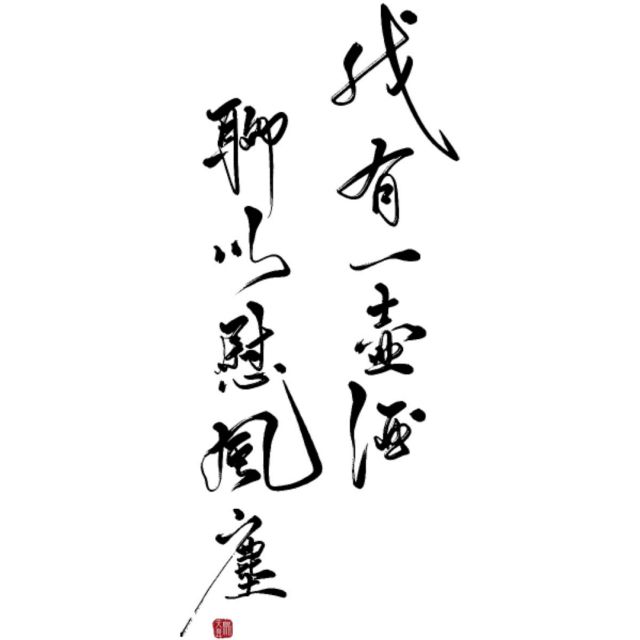 我有一壺酒
聊以慰風塵